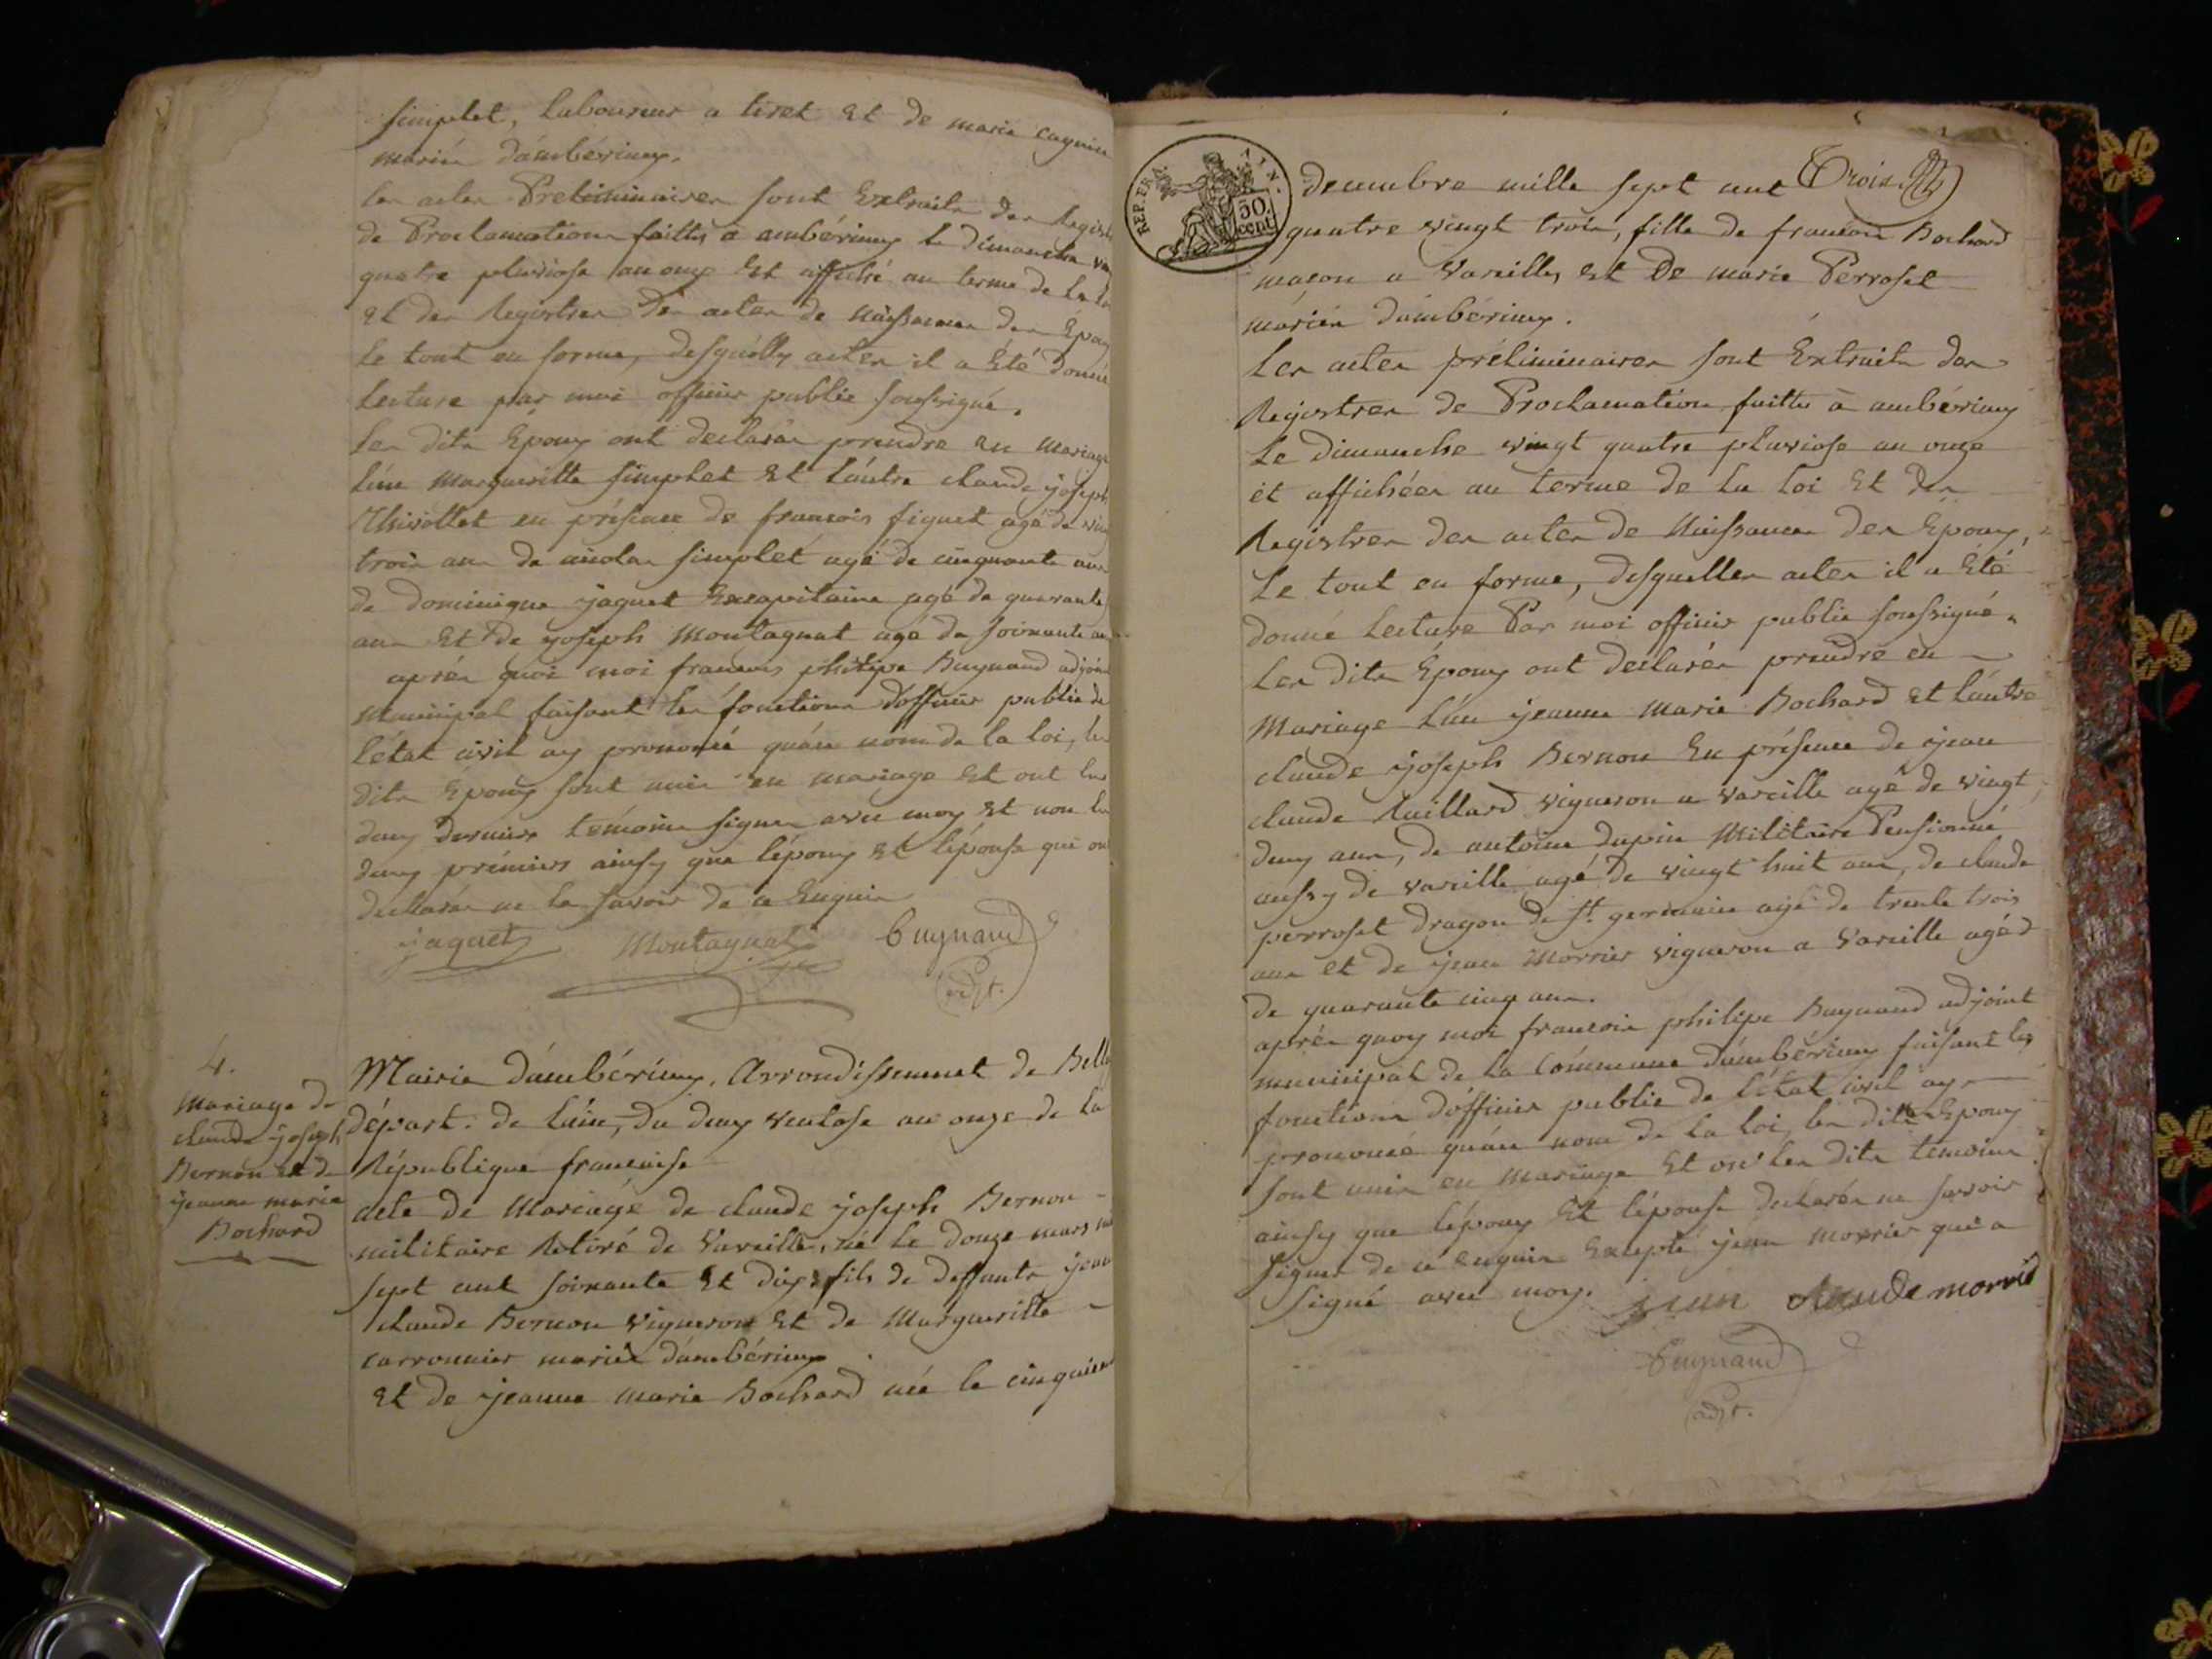 simplet, laboureur a tiret Et de marie cagnin
mariés d'ambérieux.
les actes Preliminaires sont Extraits des Regist
de Proclamations faittes a ambérieux le dimanche
quatre pluviose an onze Et affiché au terme de la loi
Et des Registres des actes de Naissances des Époux
le tout en forme, desquelles actes il a Été donné
lecture par moi officier public soussigné.
les dits Epoux ont declarés prendre en mariage
l'un Margueritte simplet Et l'autre claude joseph
Thivollet en présence de francois figuet agé de vingt
trois ans de nicolas simplet agé de cinquante ans
de dominique jaquet Excapitaine agé de quarante
ans Et de joseph Montagnat agé de soixante ans
après quoi moi francois philipe Bugnaud adjoint
Municipal faisant les fonctions d'officier public de
l'état civil ay prononcé qu'au nom de la loi, les
dits Époux sont unis en mariage Et ont les
deux derniers témoins signés avec moy Et non les
deux prémiers ainsy que l'époux Et l'épouse qui ont
declarés ne le savoir de ce Enquis
jaquet Montagnat Bugnaud
adjt.
4.
Mariage de
claude joseph
Bernon et de
jeanne marie
Bochard
Mairie d'ambérieux, Arrondissement de Belley
départ. de l'ain, du deux ventose an onze de la
République francaise
acte de Mariage de claude joseph Bernon
militaire Retiré de Vareilles, né le douze mars mil
sept cent soixante Et dix, fils de deffunts jean
claude Bernon vigneron Et de Margueritte
carronnier mariés d'ambérieux
Et de jeanne marie Bochard née le cinquieme
REP. FRA.
AIN.
50.
cent.
Trois.
decembre mille sept cent
quatre vingt trois, fille de francois Bochard
maçon a Vareilles Et De marie Perroset
mariés d'ambérieux.
Les actes préliminaires sont Extraits des
Registres de Proclamation faittes à ambérieux
le dimanche vingt quatre pluviose an onze
et affichées au terme de la loi Et des
Registres des actes de Naissances des Epoux,
Le tout en forme, desquelles actes il a Été
donné lecture Par moi officier public soussigné.
Les dits Époux ont declarés prendre en
Mariage l'un jeanne Marie Bochard Et l'autre
claude joseph Bernon En présence de jean
claude Raillard vigneron a vareille agé de vingt
deux ans, de antoine dupin Militaire Pensionné
aussy de vareille agé de vingt huit ans, de claude
perroset dragon de St. germain agé de trente trois
ans et de jean Morrier vigneron a Vareille agé d
de quarante cinq ans.
après quoy moi francois philipe Bugnaud adjoint
municipal de la Commune d'ambérieux faisant les
fonctions d'officier public de l'état civil ay
prononcé qu'au nom de la loi, les dits Epoux
sont unis en mariage Et on' les dits temoins
ainsy que l'époux Et l'épouse declarés ne savoir
signer de ce enquis Excepté jean Morrier qui a
signé avec moy. jean claude morrié
Bugnaud
adjt.